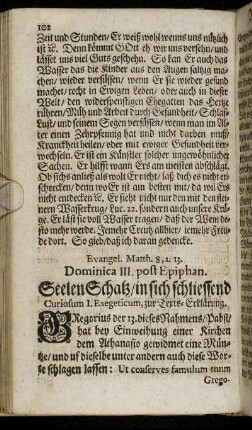 102
Zeit und Stunden/ Er weiß wohl wenns uns nützlich
ist ꝛc. Denn kömmt GOtt eh wir uns versehn/ und
lässet uns viel Guts geschehn. So kan Er auch das
Wasser das die Kinder aus den Augen saltzig ma-
chen/ wieder versüssen/ wenn Er sie wieder gesund
machet/ recht in Ewigen Leben/ oder auch in dieser
Welt/ den widerspenstigen Ehegatten das Hertz
rühren/ Müh und Arbeit durch Gesundheit/ Schlaf/
Lust/ und seinem Segen versüssen/ wenn man im Al-
ter einen Zehrpfennig hat und nicht darben muß/
Kranckheit heilen/ oder mit ewiger Gesundheit ver-
wechseln. Er ist ein Künstler solcher ungewöhnlicher
Sachen. Er hilfft wann Ers am meisten abschlägt.
Ob sichs anließ als wolt Er nicht/ laß dich es nicht er-
schrecken/ denn wo Er ist am besten mit/ da wil Ers
nicht entdecken ꝛc. Er sieht nicht nur den mit dem stei-
nern Wasserkrug/ Luc. 22. sondern auch unsere Krü-
ge. Er läst sie voll Wasser tragen/ daß der Wein de-
sto mehr werde. Jemehr Creutz allhier/ jemehr Freu-
de dort. So gieb/ daß ich daran gedencke.
Evangel. Matth. 8, 1. 13.
Dominica III. post Epiphan.
Seelen Schatz/ in sich schliessend
Curiosum I. Exegeticum, zur Texts-Erklärung.
GRegorius der 13. dieses Nahmens/ Pabst/
hat bey Einweihung einer Kirchen
dem Athanasio gewidmet eine Mün-
tze/ und uf dieselbe unter andern auch diese Wor-
te schlagen lassen: Ut conserves famulum tuum
Grego-